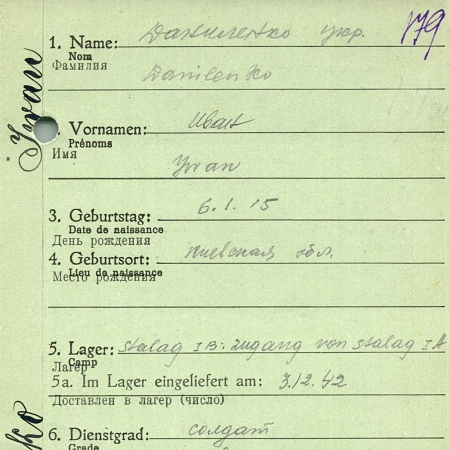 179
1. Name: Даниленко укр.
Nom
Фамилия
Danilenko
Yvan
Vornamen: Иван
Prénoms
Имя
Yvan
3. Geburtstag: 6.1.15
Date de naissance
День рождения
4. Geburtsort: Киевская обл.
Lieu de naissance
Место рождения
5. Lager: Stalag IB: Zugang von Stalag IA
Camp
Лагерь
5a. Im Lager eingeliefert am: 3.12.42
Доставлен в лагерь (число)
6. Dienstgrad: солдат
Grade
ko